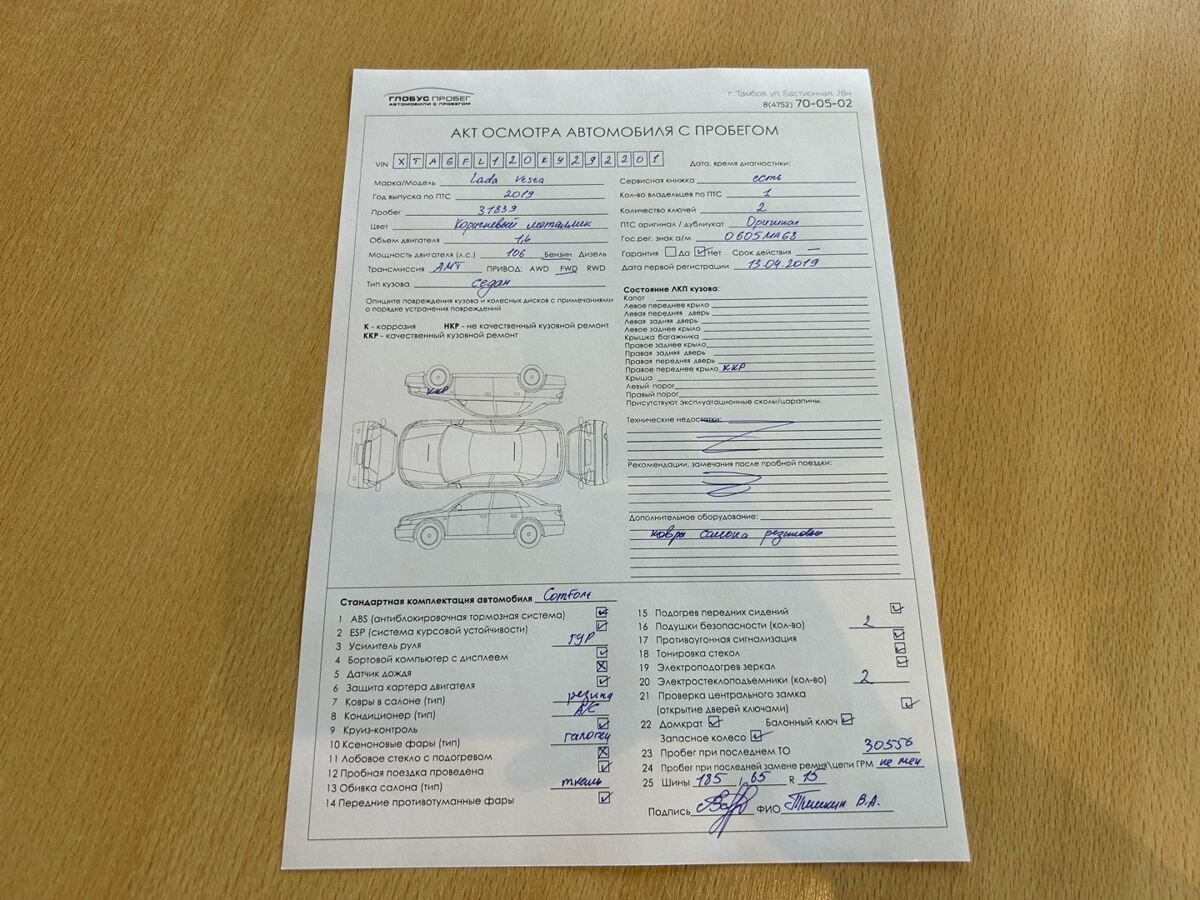 ГЛОБУС ПРОБЕГ
АВТОМОБИЛИ С ПРОБЕГОМ
г. Тамбов, ул. Бастионная, 28н
8(4752) 70-05-02
АКТ ОСМОТРА АВТОМОБИЛЯ С ПРОБЕГОМ
VIN XTAGFL120K4292201
Дата, время диагностики:
Марка/Модель Lada Vesta
Год выпуска по ПТС 2019
Пробег 31839
Цвет Коричневый металлик
Объем двигателя 1,6
Мощность двигателя (л.с.) 106 Бензин Дизель
Трансмиссия АМТ ПРИВОД: AWD FWD RWD
Тип кузова Седан
Сервисная книжка есть
Кол-во владельцев по ПТС 1
Количество ключей 2
ПТС оригинал / дубликат Оригинал
Гос.рег. знак а/м О605МА68
Гарантия Да Нет Срок действия —
Дата первой регистрации 13.04.2019
Опишите повреждения кузова и колесных дисков с примечаниями
о порядке устранения повреждений
К - коррозия НКР - не качественный кузовной ремонт
ККР - качественный кузовной ремонт
ККР
Состояние ЛКП кузова:
Капот
Левое переднее крыло
Левая передняя дверь
Левая задняя дверь
Левое заднее крыло
Крышка багажника
Правое заднее крыло
Правая задняя дверь
Правая передняя дверь
Правое переднее крыло ККР
Крыша
Левый порог
Правый порог
Присутствуют эксплуатационные сколы/царапины.
Технические недостатки:
Рекомендации, замечания после пробной поездки:
Дополнительное оборудование:
ковры салона резиновые
Стандартная комплектация автомобиля Comfort
1 ABS (антиблокировочная тормозная система)
2 ESP (система курсовой устойчивости)
3 Усилитель руля ГУР
4 Бортовой компьютер с дисплеем
5 Датчик дождя
6 Защита картера двигателя
7 Ковры в салоне (тип) резина
8 Кондиционер (тип) A/C
9 Круиз-контроль
10 Ксеноновые фары (тип) галоген
11 Лобовое стекло с подогревом
12 Пробная поездка проведена
13 Обивка салона (тип) ткань
14 Передние противотуманные фары
15 Подогрев передних сидений
16 Подушки безопасности (кол-во) 2
17 Противоугонная сигнализация
18 Тонировка стекол
19 Электроподогрев зеркал
20 Электростеклоподъемники (кол-во) 2
21 Проверка центрального замка
(открытие дверей ключами)
22 Домкрат Балонный ключ
Запасное колесо
23 Пробег при последнем ТО 30556
24 Пробег при последней замене ремня\цепи ГРМ не мен
25 Шины 185 / 65 R 15
Подпись ФИО В.А.